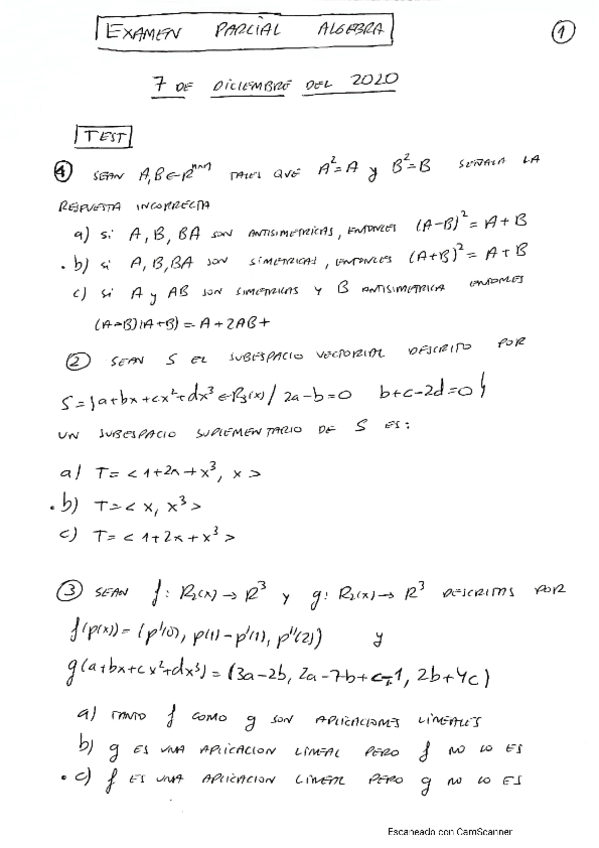 EXAMEN PARCIAL ALGEBRA
1
7 DE DICIEMBRE DEL 2020
TEST
1 SEAN A,B∈R^{n×n} TALES QUE A²=A y B²=B SEÑALA LA
RESPUESTA INCORRECTA
a) si A, B, BA SON ANTISIMETRICAS, ENTONCES (A-B)²=A+B
. b) si A, B, BA SON SIMETRICAS, ENTONCES (A+B)²=A+B
c) si A y AB SON SIMETRICAS Y B ANTISIMETRICA ENTONCES
(A-B)(A+B)=A+2AB+
2 SEAN S EL SUBESPACIO VECTORIAL DESCRITO POR
S={a+bx+cx²+dx³∈P₃(x)/ 2a-b=0 b+c-2d=0}
UN SUBESPACIO SUPLEMENTARIO DE S ES:
a) T=<1+2x+x³, x>
. b) T=<x, x³>
c) T=<1+2x+x³>
3 SEAN f: P₂(x)→R³ y g: P₂(x)→R³ DESCRITAS POR
f(p(x))=(p'(0), p(1)-p'(1), p''(2)) y
g(a+bx+cx²+dx³)=(3a-2b, 2a-7b+c+1, 2b+4c)
a) TANTO f COMO g SON APLICACIONES LINEALES
b) g ES UNA APLICACION LINEAL PERO f NO LO ES
. c) f ES UNA APLICACION LINEAL PERO g NO LO ES
Escaneado con CamScanner